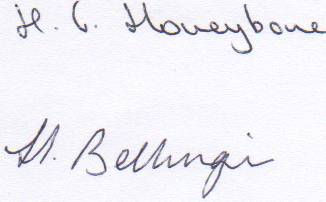 H. C. Honeybone
H. Bellingin